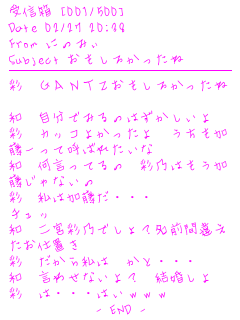 受信箱 [001/500]
Date 02/27 20:38
From にのあい
Subject おもしろかったね
彩 GANTZおもしろかったね
和 自分でみるのはずかしいよ
彩 カッコよかったよ うちも加
藤ーって呼ばれたいな
和 何言ってるの 彩乃はもう加
藤じゃないの
彩 私は加藤だ・・・
チュッ
和 二宮彩乃でしょて名前間違え
たお仕置き
彩 だから私は かと・・・
和 言わせないよて 結婚しよ
彩 は・・・はいwww
- END -